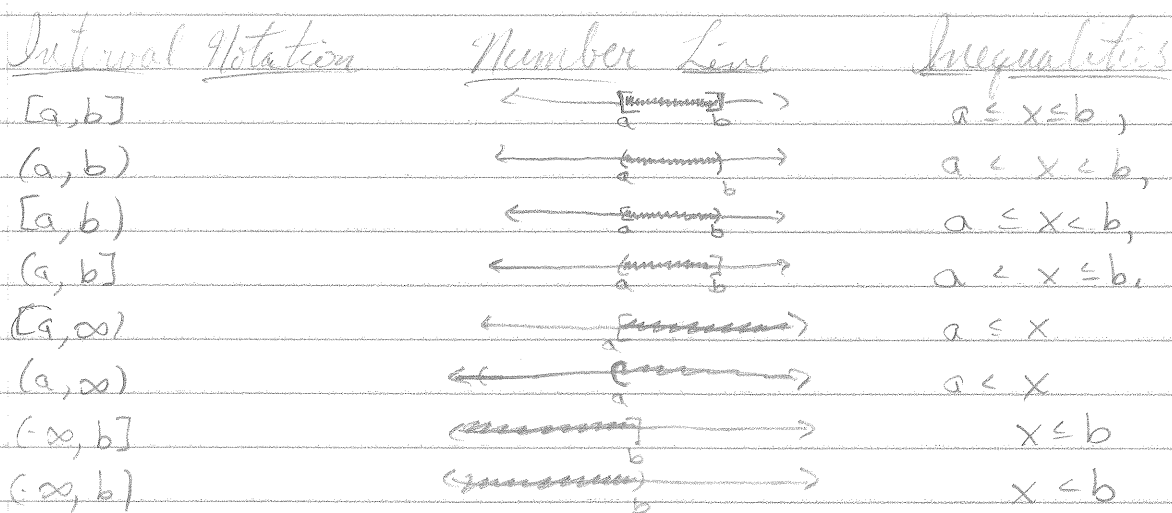 Interval Notation Number Line Inequalities
[a, b] [ ] a b a ≤ x ≤ b,
(a, b) ( ) a b a < x < b,
[a, b) [ ) a b a ≤ x < b,
(a, b] ( ] a b a < x ≤ b,
[a, ∞) [ a a ≤ x
(a, ∞) ( a a < x
(-∞, b] ] b x ≤ b
(-∞, b) ) b x < b